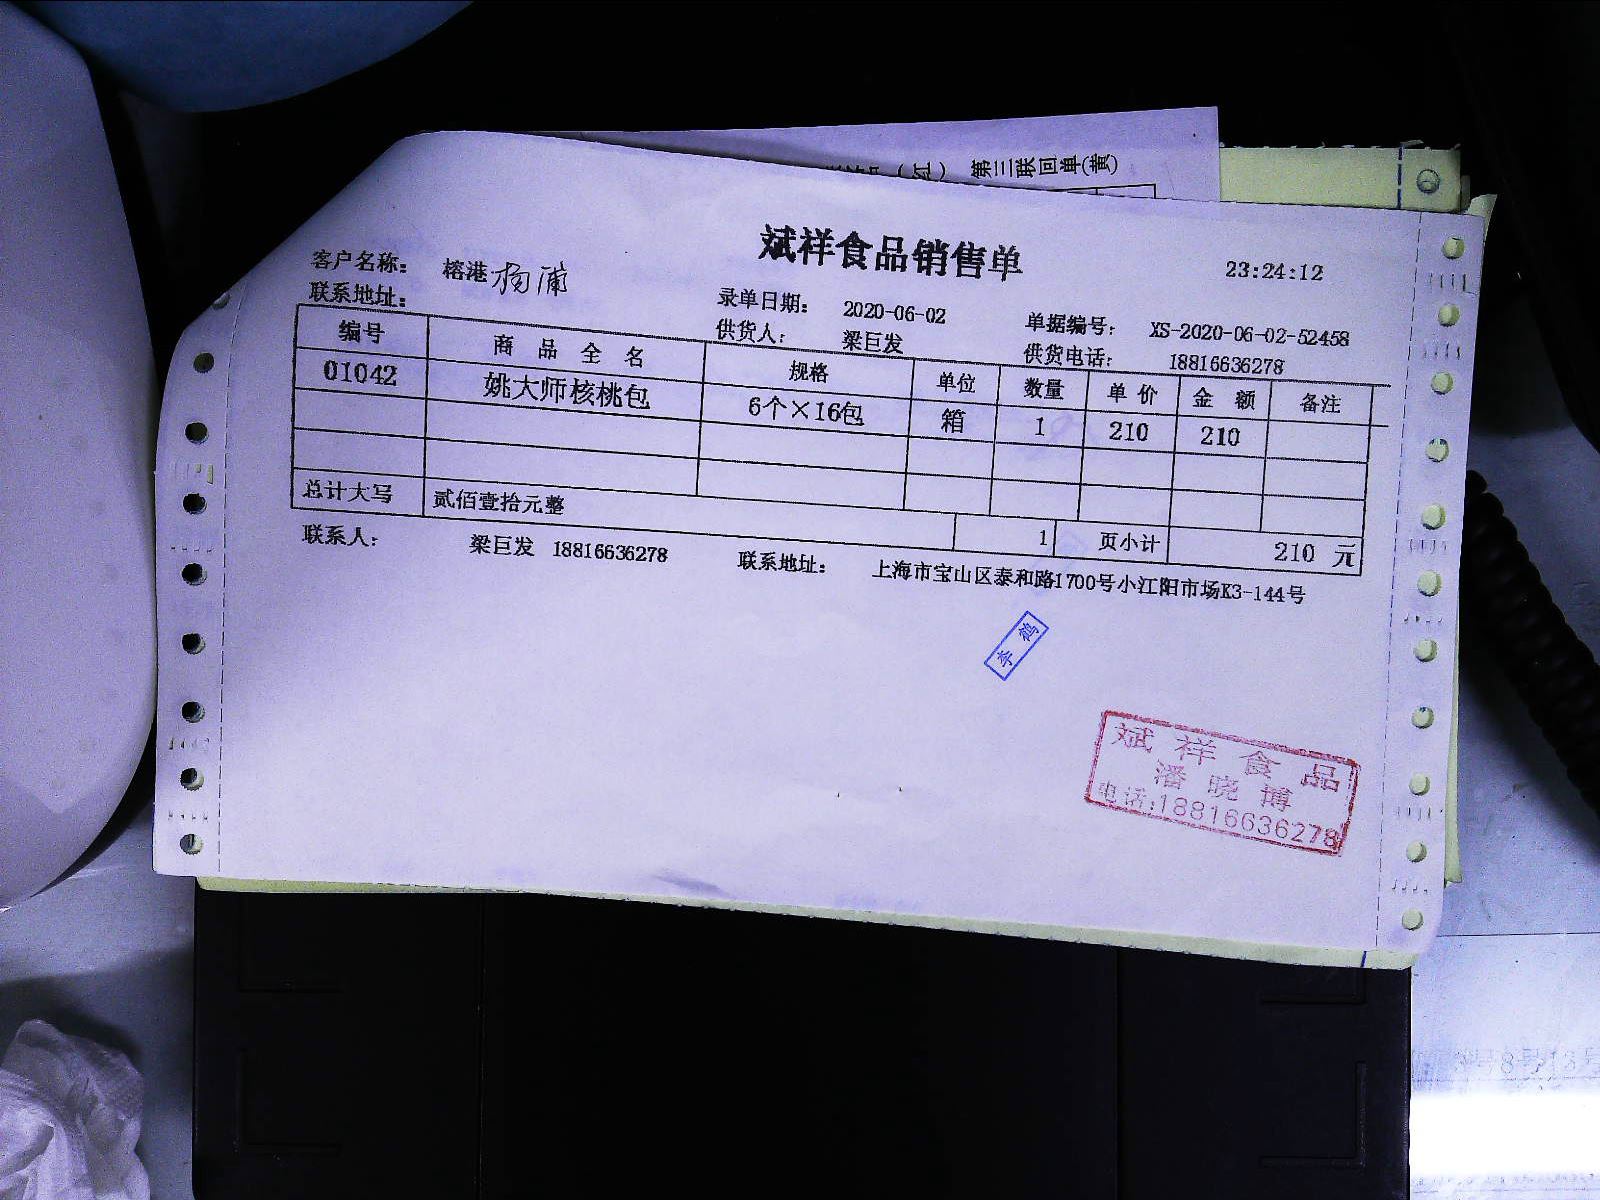 （红） 第三联回单(黄)
斌祥食品销售单
23:24:12
客户名称： 榕港 杨浦
联系地址：
录单日期： 2020-06-02
单据编号： XS-2020-06-02-52458
供货人： 梁巨发
供货电话： 18816636278
编号 商 品 全 名 规格 单位 数量 单 价 金 额 备注
01042 姚大师核桃包 6个×16包 箱 1 210 210
总计大写 贰佰壹拾元整 1 页小计 210 元
联系人： 梁巨发 18816636278 联系地址： 上海市宝山区泰和路1700号小江阳市场K3-144号
李 鹤
斌 祥 食 品
潘 晓 博
电话:18816636278